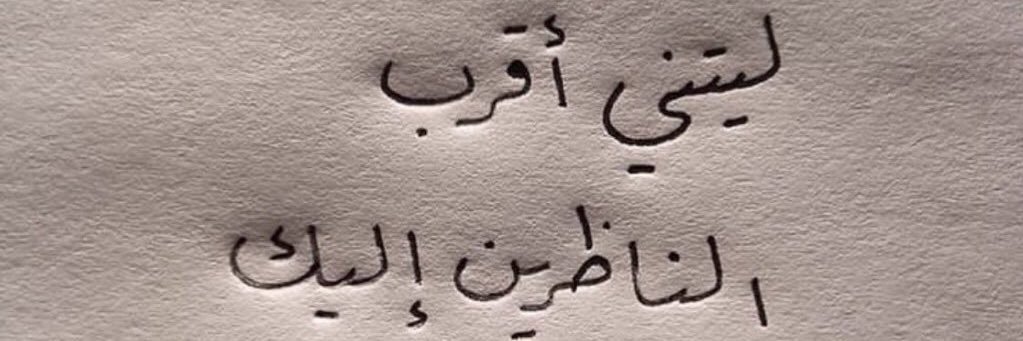 ليتني أقرب
الناظرين إليك